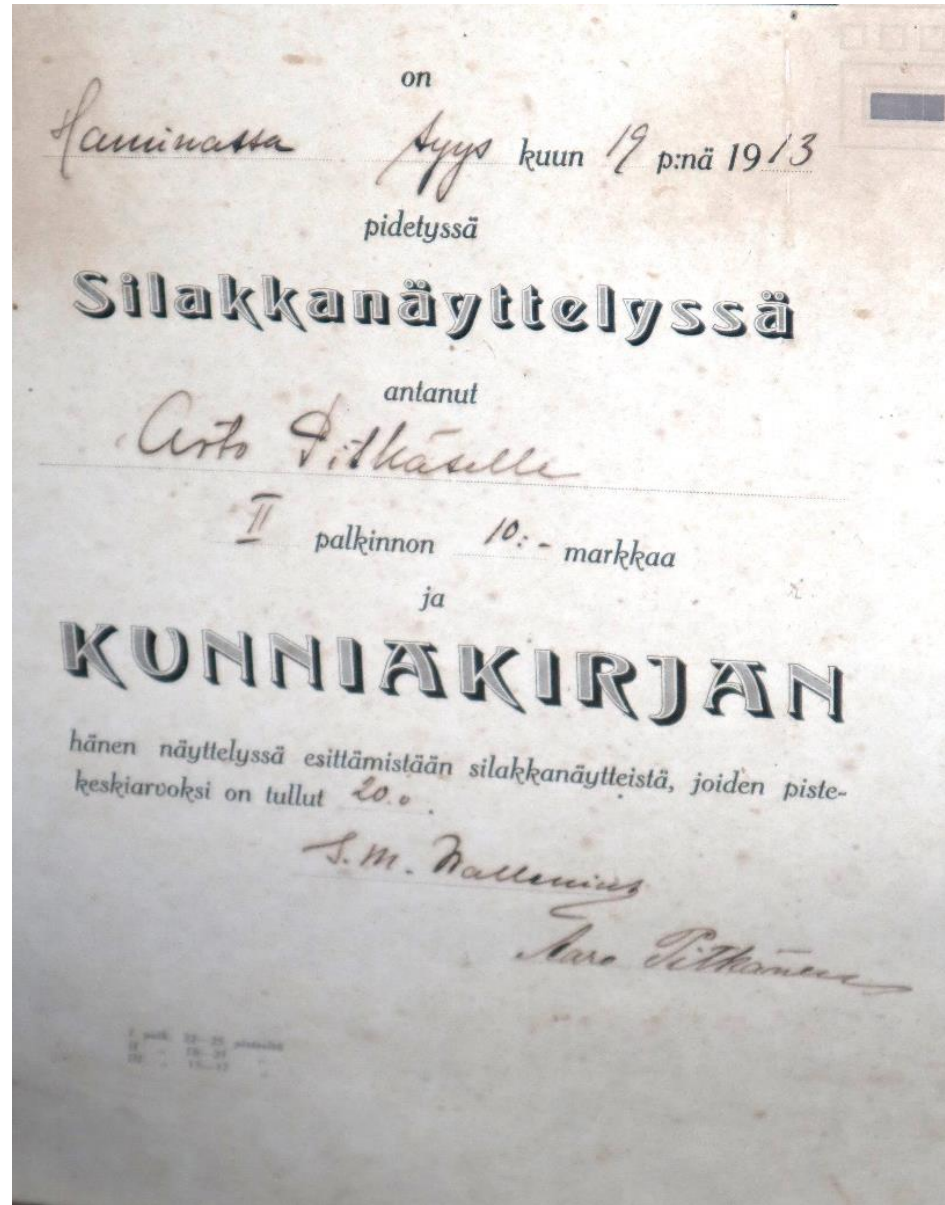 on
Haminassa syys kuun 19 p:nä 1913
pidetyssä
Silakkanäyttelyssä
antanut
Arto Pitkäselle
II palkinnon 10:- markkaa
ja
KUNNIAKIRJAN
hänen näyttelyssä esittämistään silakkanäytteistä, joiden piste-
keskiarvoksi on tullut 20.0.
S. M. Wallenius
Aaro Pitkänen
I palk. 22—25 pisteeltä
II " 18—21 "
III " "